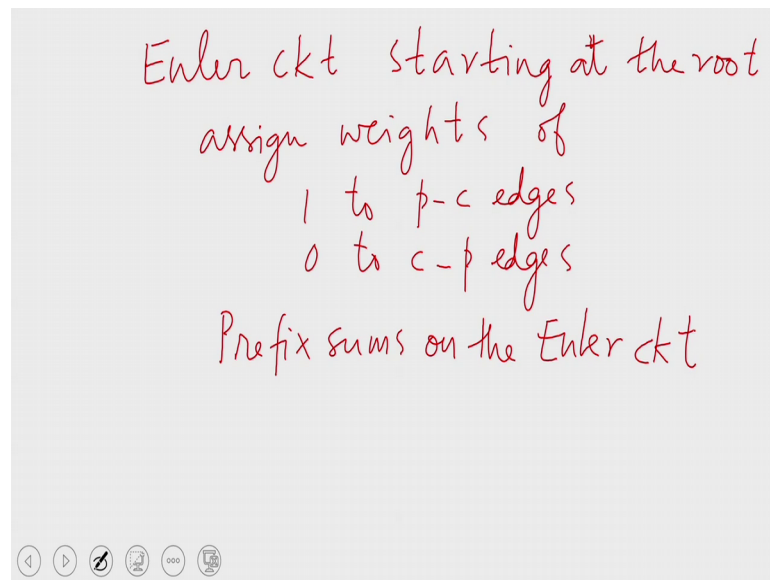 Euler ckt starting at the root
assign weights of
1 to p-c edges
0 to c-p edges
Prefix sums on the Euler ckt